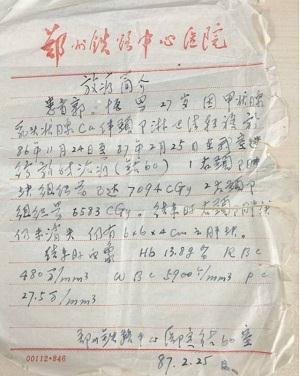 郑州铁路中心医院
放疗简介
患者郭 恪 男 27岁 因甲状腺
乳头状腺Ca伴颈 淋巴结转移 于
86年11月24日至87年2月25日在我室进
行放射治疗(钴60) 1 右颈
组织量已达7094CGy 2 左颈
组织量6583CGy。结束时右颈 肿块
仍未消失 仍有6×6×4cm之肿块。
结束时血象 Hb 13.8g% RBC
480万/mm3 WBC 5900/mm3 pc
27.5万/mm3
郑州铁路中心医院钴60室
87.2.25
00112·846